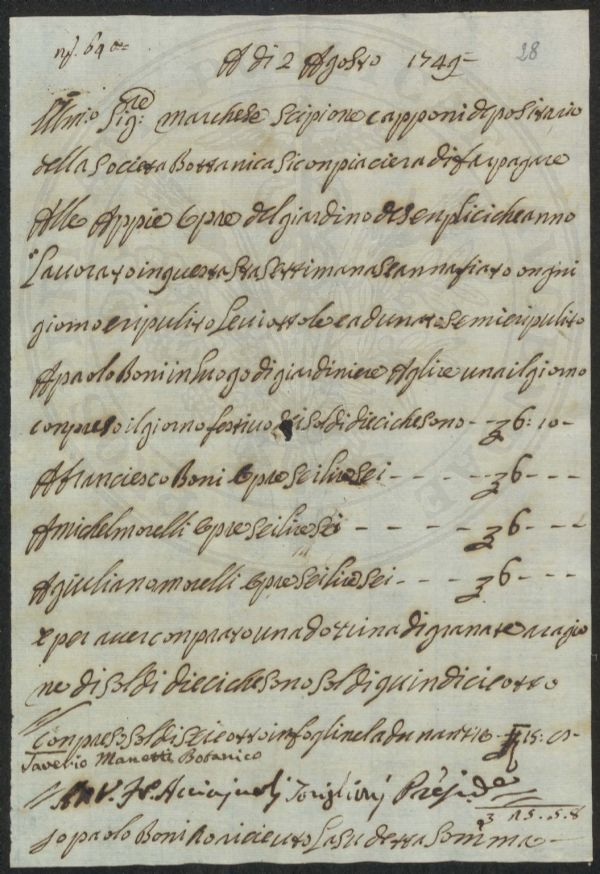 A di 2 Agosto 1749 28
Ill:mo Sig:re marchese scipione capponi depositario
della societa Bottanica si conpiacera di far pagare
Alle Appie Opre del giardino de senplici che anno
Lavorato in questa sta settimana e annafiato ongni
giorno e ripulito Le viottole e adunato semi e ripulito
A paolo Boni in luogo di giardiniere A lire una il giorno
conpreso il giorno festivo di soldi dieci che sono - - 6: 10 -
A franciesco Boni Opre sei lire sei - - - - - 6 - - -
A michel morelli Opre sei lire sei - - - - - 6 - - -
A giuliano morelli Opre sei lire sei - - - 6 - - -
e per aver conprato una dozzina di granate a ragio
ne di soldi dieci che sono soldi quindici e otto
conpreso soldi e otto in fogli
Saverio Manetti Botanico
Acciajuoli Toriglioni Preside
25. 5. 8
Io paolo Boni o riceuto La su detta Somma